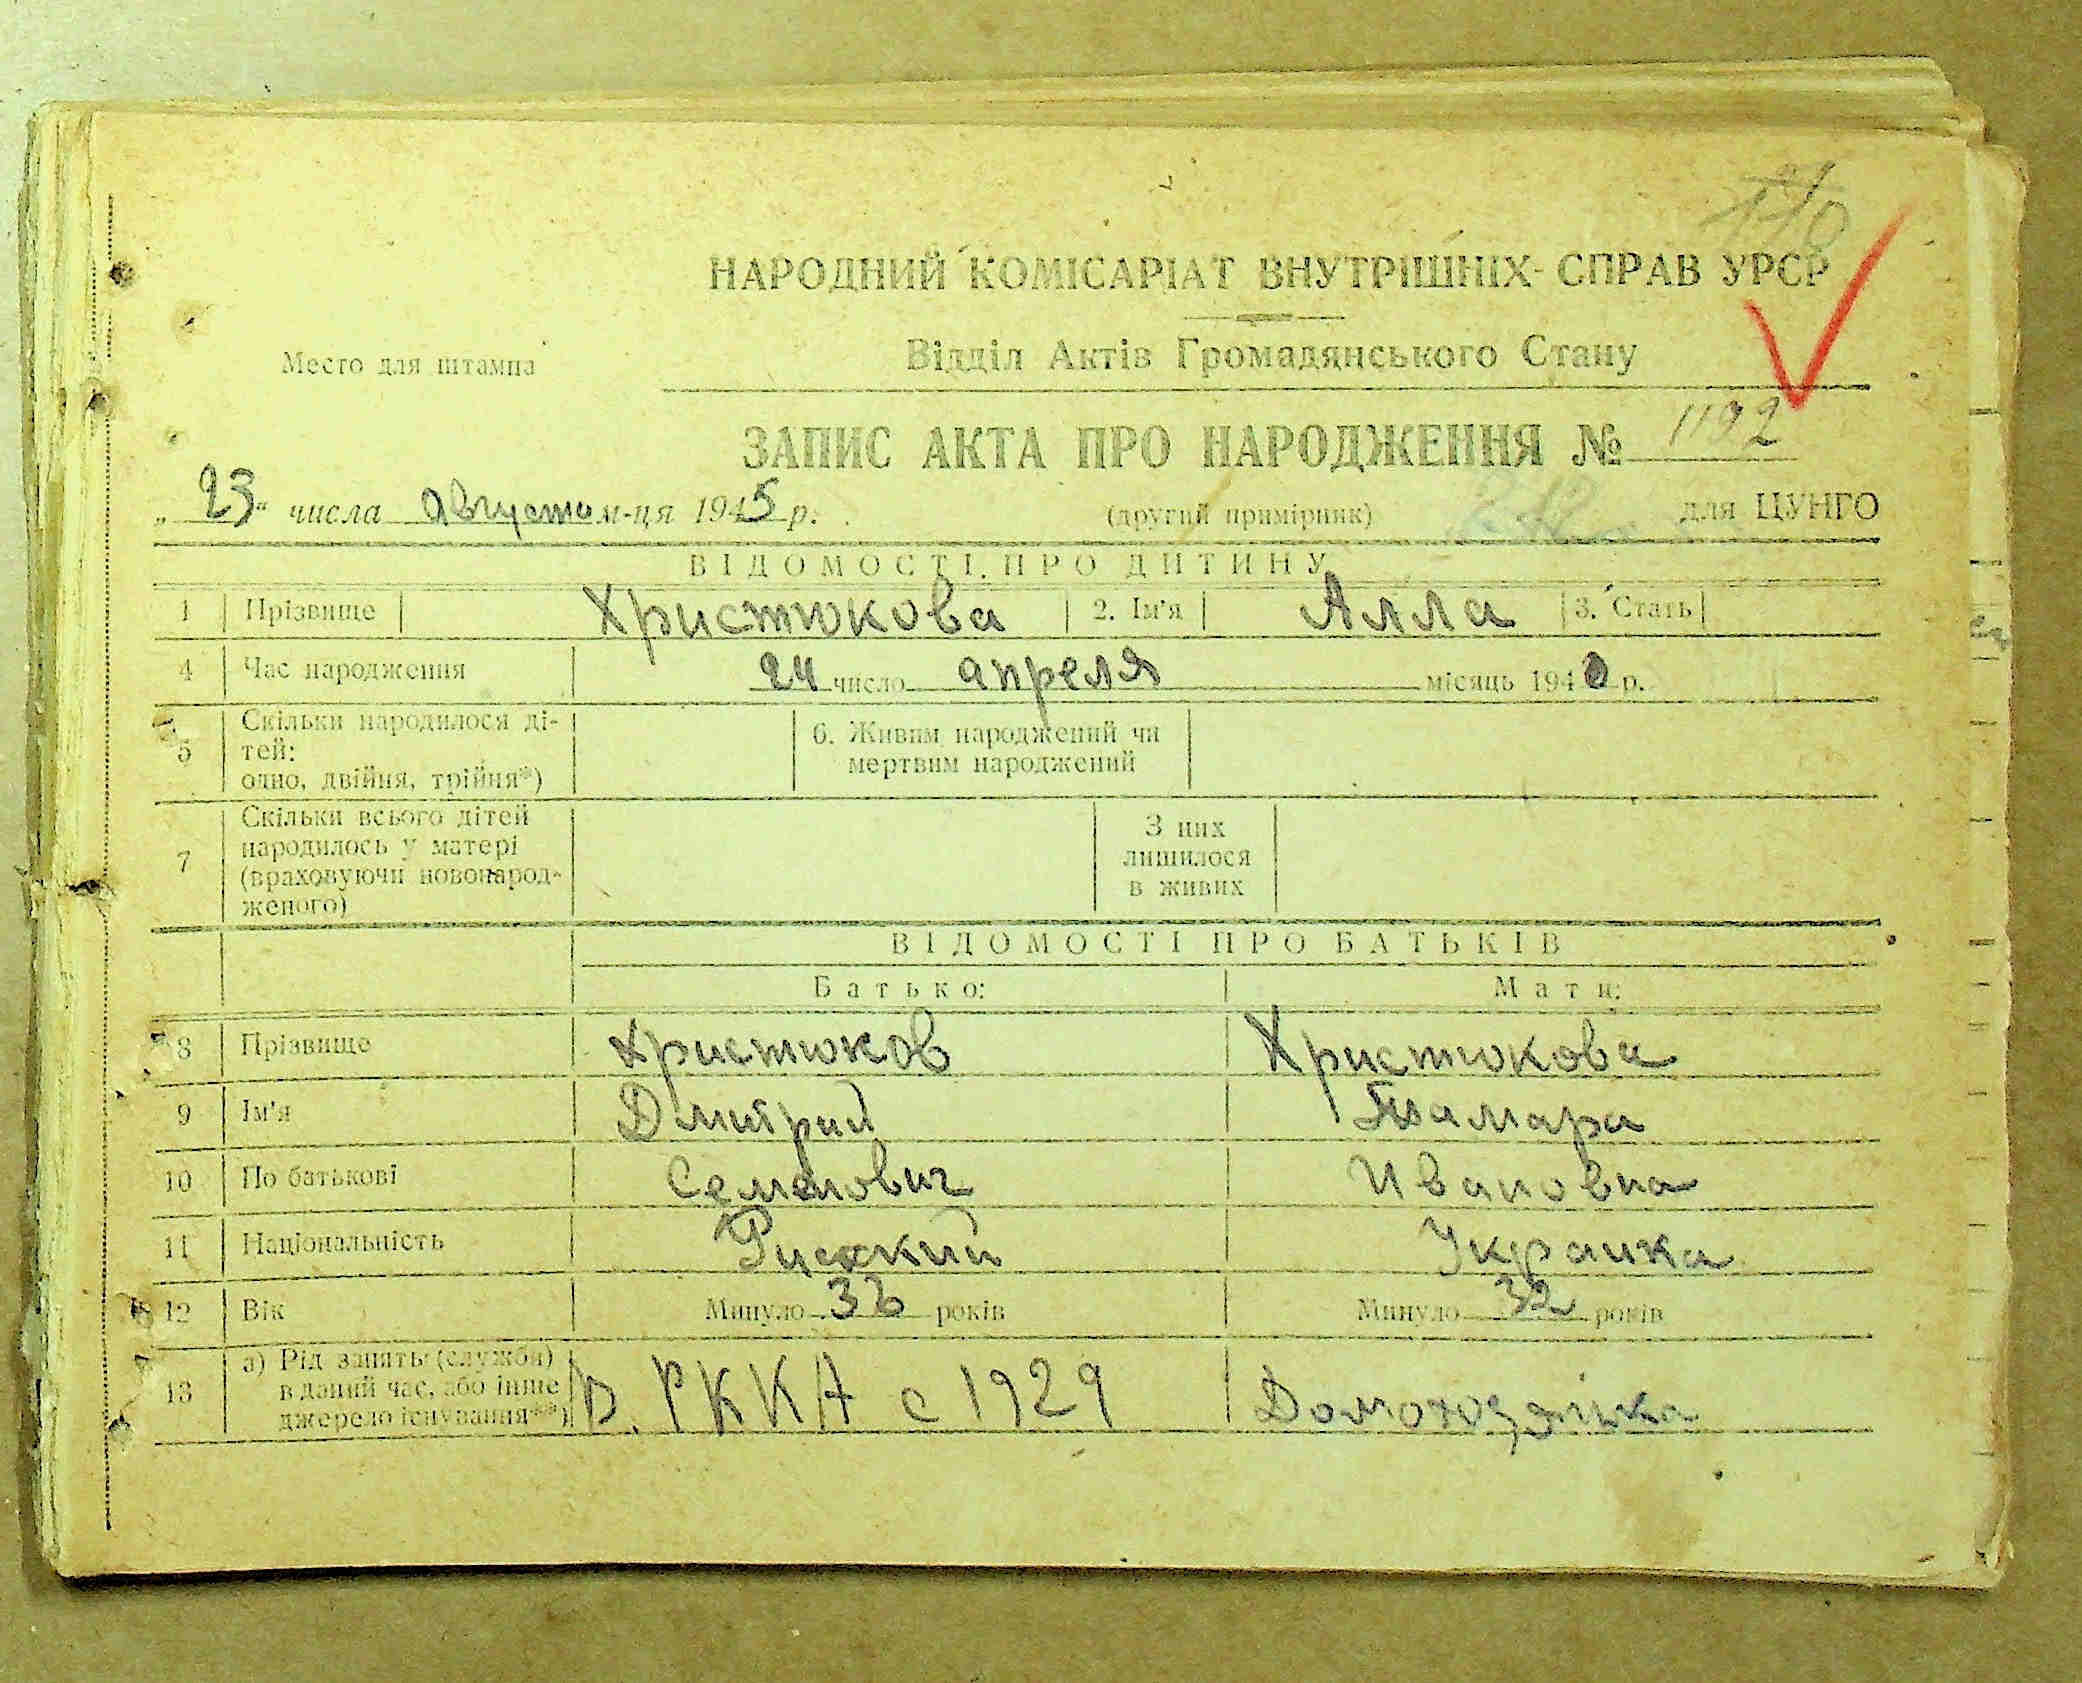 170
НАРОДНИЙ КОМІСАРІАТ ВНУТРІШНІХ СПРАВ УРСР
Место для штампа
Відділ Актів Громадянського Стану
ЗАПИС АКТА ПРО НАРОДЖЕННЯ № 1192
„23" числа августа м-ця 1945 р. (другий примірник) для ЦУНГО
ВІДОМОСТІ ПРО ДИТИНУ
1 Прізвище Христюкова 2. Ім'я Алла 3. Стать
4 Час народження 24 число апреля місяць 1940 р.
5 Скільки народилося ді-
тей:
одно, двійня, трійня*)
6. Живим народжений чи
мертвим народжений
7 Скільки всього дітей
народилось у матері
(враховуючи новонарод-
женого)
З них
лишилося
в живих
ВІДОМОСТІ ПРО БАТЬКІВ
Батько: Мати:
8 Прізвище Христюков Христюкова
9 Ім'я Дмитрий Тамара
10 По батькові Семенович Ивановна
11 Національність Русский Украинка
12 Вік Минуло 33 років Минуло 32 років
13 а) Рід занять (служби)
в даний час, або інше
джерело існування**)
В. РККА с 1929 Домохозяйка